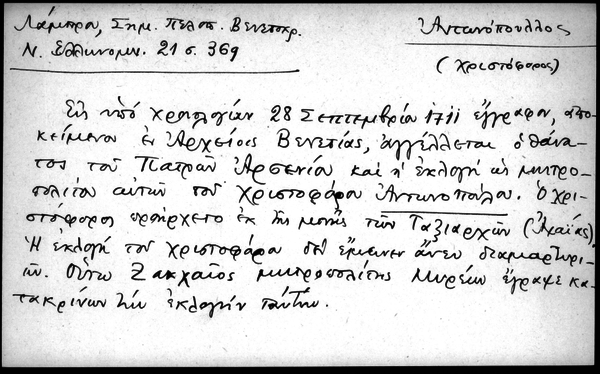 Λάμπρου, Σημ. Πελοπ. Βενετοκρ.
Ν. Ἑλληνομν. 21 σ. 369
Ἀντωνόπουλλος
(Χριστόφορος)
Εἰς ὑπὸ χρονολογίαν 28 Σεπτεμβρίου 1711 ἔγγραφον, ἀπο-
κείμενον ἐν Ἀρχείοις Βενετίας, ἀγγέλλεται ὁ θάνα-
τος τοῦ Πατρῶν Ἀρσενίου καὶ ἡ ἐκλογὴ ὡς μητρο-
πολίτου αὐτῶν τοῦ Χριστοφόρου Ἀντωνοπούλου. Ὁ Χρι-
στόφορος προήρχετο ἐκ τῆς μονῆς τῶν Ταξιαρχῶν (Ἀχαΐας).
Ἡ ἐκλογὴ τοῦ Χριστοφόρου δὲν ἔμεινεν ἄνευ διαμαρτυρι-
ῶν. Οὕτω Ζακχαῖος μητροπολίτης Μυρέων ἔγραψε κα-
τακρίνων τὴν ἐκλογὴν ταύτην.